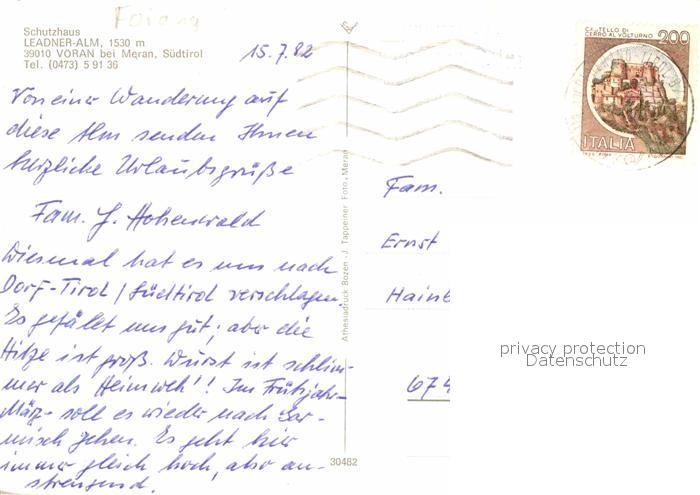 Schutzhaus
LEADNER-ALM, 1530 m
39010 VÖRAN bei Meran, Südtirol
Tel. (0473) 5 91 36
15.7.82
Von einer Wanderung auf
diese Alm senden Ihnen
herzliche Urlaubsgrüße
Fam. J. Hohenwald
Diesmal hat es uns nach
Dorf-Tirol / Südtirol verschlagen.
Es gefällt uns gut; aber die
Hitze ist groß. Durst ist schlim-
mer als Heimweh!! Im Frühjahr-
März- soll es wieder nach Gar-
misch gehen. Es geht hier
immer gleich hoch, also an-
strengend.
Athesiadruck Bozen - J. Tappeiner Foto, Meran
30482
CASTELLO DI
CERRO AL VOLTURNO
200
ITALIA
Fam.
Ernst
Hain
674
privacy protection
Datenschutz